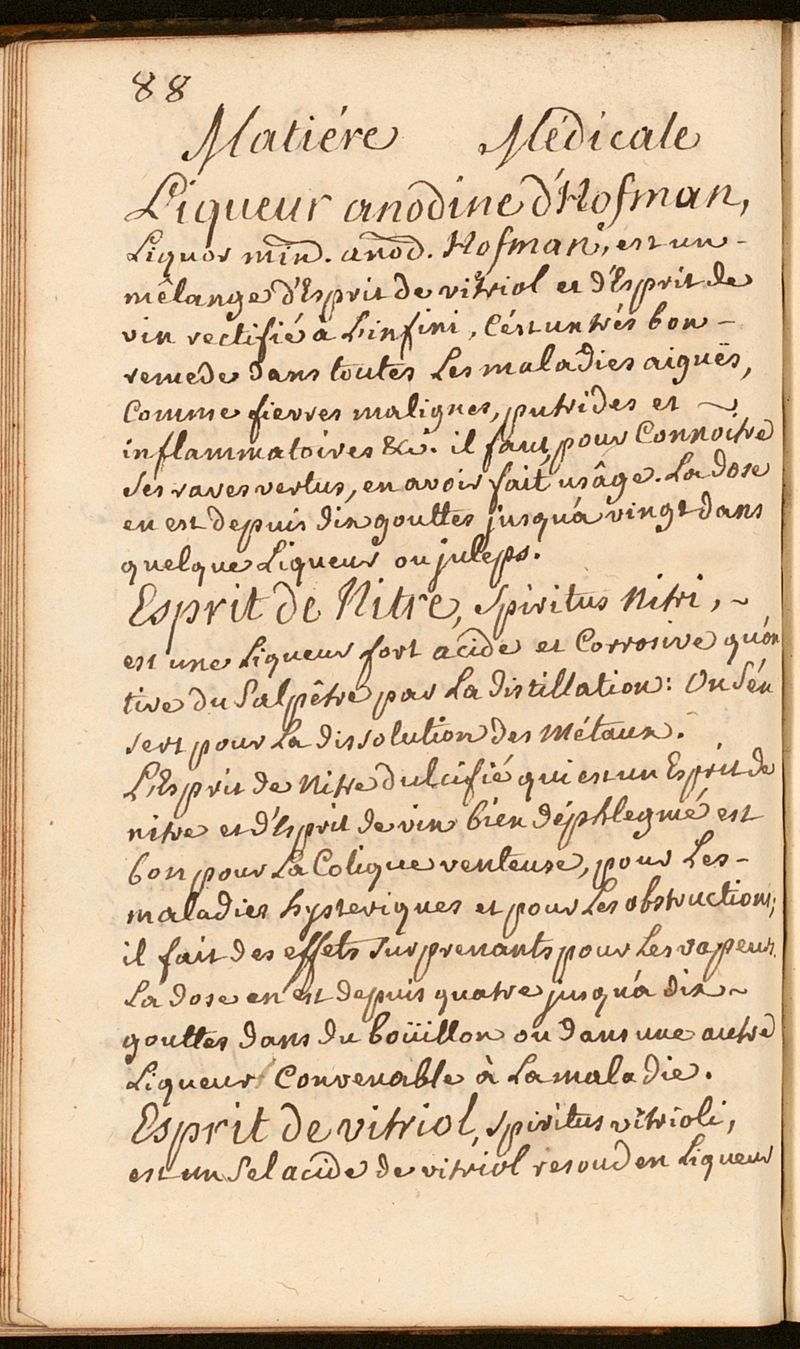 88
Matiére Médicale
Liqueur anodine d'Hofman,
Liquor min. anod. Hofman, est un -
mêlange d'Esprit de vitriol et d'Esprit de
vin rectifié à L'infini, C'ést un trés bon -
remede dans toutes Les maladies aiguës,
Comme fievres malignes, putrides et ~
inflammatoires &c. il faut pour Connoitre
Ses rares vertus, en avoir fait usâge. La dose
en est depuis dix gouttes jusqu'a vingt dans
quelque Liqueur ou juleps.
Esprit de Nitre, Spiritus Nitri, ~
est une Liqueur fort acide et Corrosive qu'on
tire du Salpêtre par La distillation: On S'én
sert pour La dissolution des Métaux.
L'Esprit de Nitre dulcifié qui est un Esprit de
nitre et d'Esprit de vin bien déphlegmé est
bon pour La Colique venteuse, pour Les -
maladies hysteriques et pour Les obstructions;
il fait des effets surprenants pour Les vapeurs.
La dose en est depuis quatre jusqu'a dix ~
gouttes dans du boüillon ou dans une autre
Liqueur Convenable à La maladie.
Esprit de vitriol, Spiritus vitrioli,
est un Sel acide de vitriol resoud en Liqueur